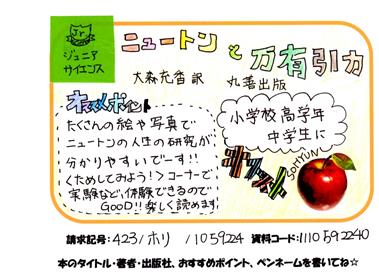 Jr
ジュニア
サイエンス
ニュートン と 万有引力
大森充香 訳 丸善出版
オススメポイント
たくさんの絵や写真で
ニュートンの人生の研究が
分かりやすいでーす!!
<ためしてみよう!>コーナーで
実験など、体験できるので
GOOD!! 楽しく読めます
小学校高学年
中学生に
オススメ
SOHYUN
請求記号: 423/ホリ /1059224 資料コード:1110592240
本のタイトル・著者・出版社、おすすめポイント、ペンネームを書いてね☆